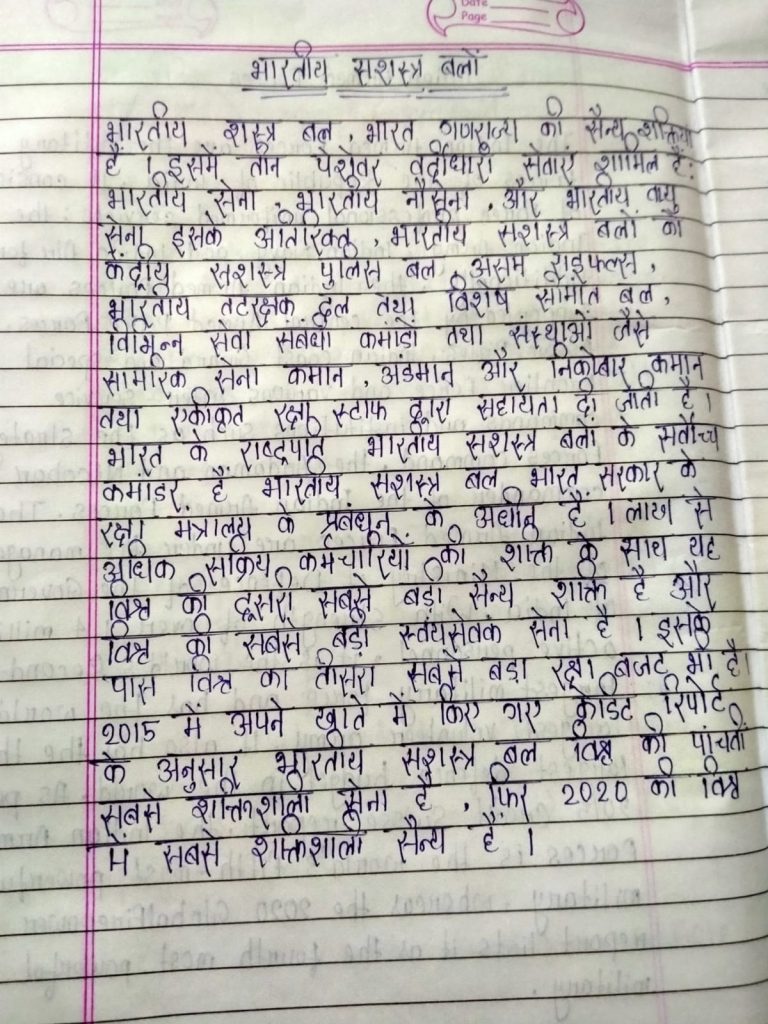 Date
Page
भारतीय सशस्त्र बलों
भारतीय शस्त्र बल, भारत गणराज्य की सैन्य शक्तियां
है । इसमें तीन पेशेवर वर्दीधारी सेवाएं शामिल हैं:
भारतीय सेना, भारतीय नौसेना, और भारतीय वायु
सेना इसके अतिरिक्त, भारतीय सशस्त्र बलों को
केंद्रीय सशस्त्र पुलिस बल, असम राइफल्स,
भारतीय तटरक्षक दल तथा विशेष सीमांत बल,
विभिन्न सेवा संबंधी कमांडो तथा संस्थाओं जैसे
सामरिक सेना कमान, अंडमान और निकोबार कमान
तथा एकीकृत रक्षा स्टाफ द्वारा सहायता दी जाती है।
भारत के राष्ट्रपति भारतीय सशस्त्र बलों के सर्वोच्च
कमांडर है भारतीय सशस्त्र बल भारत सरकार के
रक्षा मंत्रालय के प्रबंधन के अधीन है । लाख से
अधिक सक्रिय कर्मचारियों की शक्ति के साथ यह
विश्व की दूसरी सबसे बड़ी सैन्य शक्ति है और
विश्व की सबसे बड़ी स्वंयसेवक सेना है । इसके
पास विश्व का तीसरा सबसे बड़ा रक्षा बजट भी है।
2015 में अपने खाते में किए गए क्रेडिट रिपोर्ट
के अनुसार भारतीय सशस्त्र बल विश्व की पांचवीं
सबसे शक्तिशाली सेना है, फिर 2020 की विश्व
में सबसे शक्तिशाली सैन्य है ।